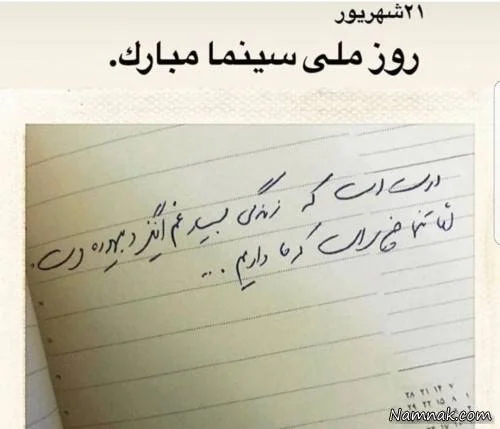 ۲۱شهریور
روز ملی سینما مبارک.
درست است که زندگی بسیار غم انگیز و بیهوده است.
اما تنها چیزی است که ما داریم ...
۲۸ ۲۱ ۱۴ ۷
۲۹ ۲۲ ۱۵ ۸ ۱
Namnak.com